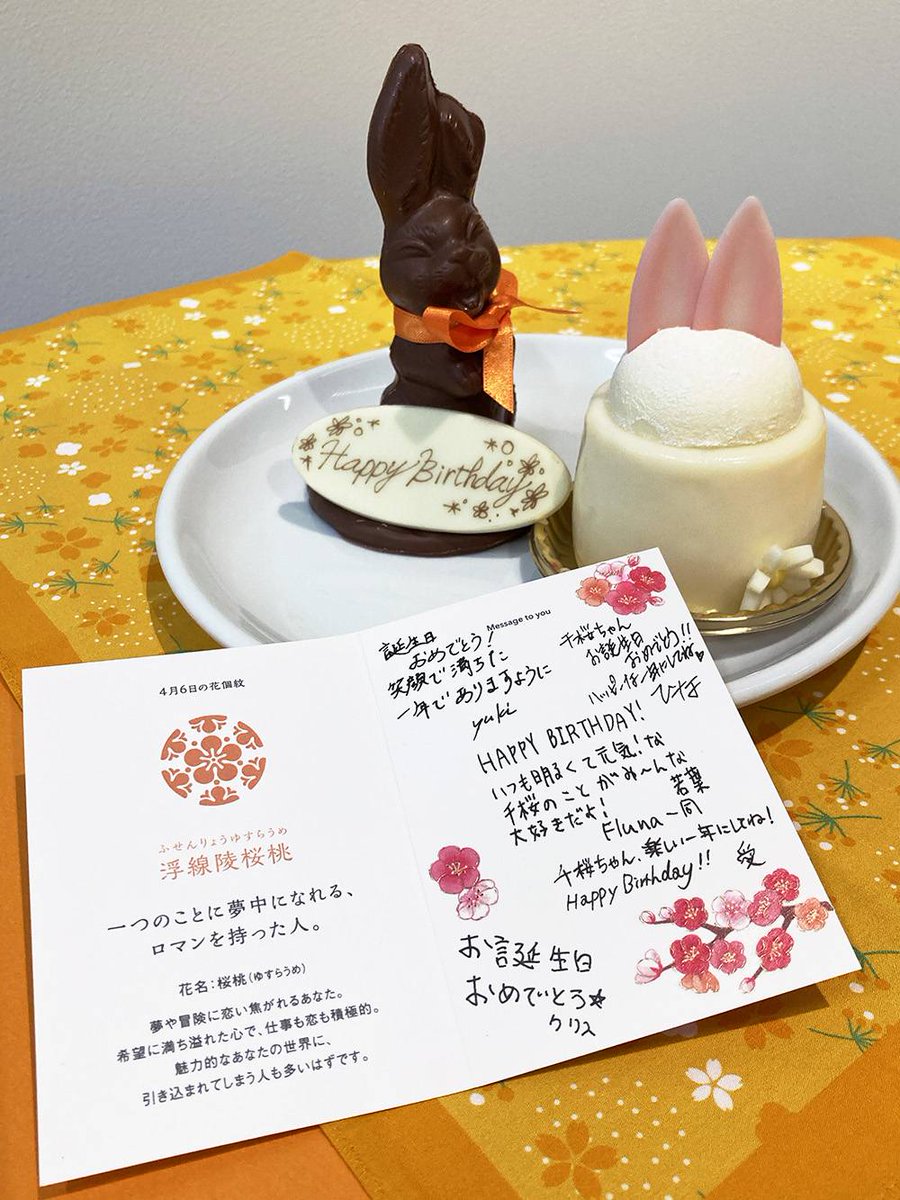 Happy Birthday
4月6日の花個紋
ふせんりょうゆすらうめ
浮線陵桜桃
一つのことに夢中になれる、
ロマンを持った人。
花名：桜桃（ゆすらうめ）
夢や冒険に恋い焦がれるあなた。
希望に満ち溢れた心で、仕事も恋も積極的。
魅力的なあなたの世界に、
引き込まれてしまう人も多いはずです。
Message to you
誕生日
おめでとう！
笑顔で満ちた
一年でありますように
yuki
千桜ちゃん
お誕生日
おめでとう!!
ヒナ
HAPPY BIRTHDAY!
いつも明るくて元気！な
千桜のことがみ〜んな
大好きだよ！
若葉
Fluna一同
千桜ちゃん、楽しい一年にしてね！
Happy Birthday!! 愛
お誕生日
おめでとう★
クリス